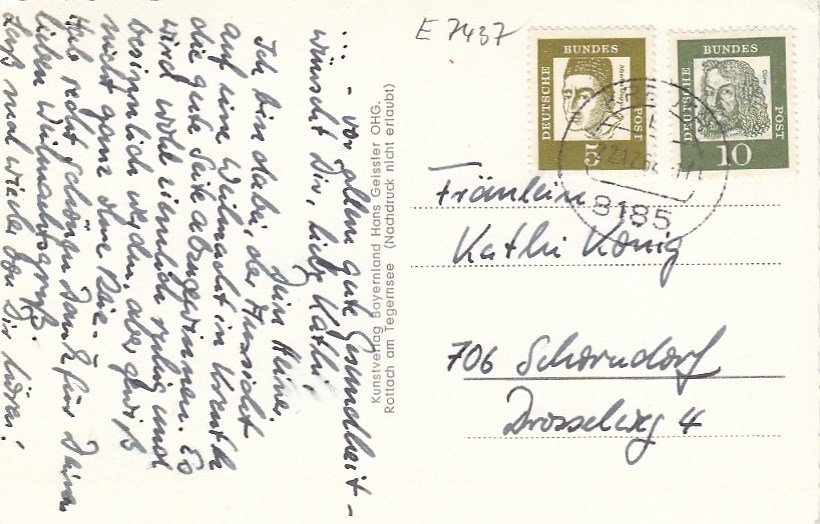 ... - vor allem gute Gesundheit -
wünscht Dir, liebe Kathi,
Dein Heiner
Ich bin dabei, der Aussicht
auf eine Weihnacht in Kreuth
die gute Seite abzugewinnen. Es
wird wohl ziemlich ruhig und
besinnlich werden, aber gewiß
nicht ganz ohne Reiz.
Hab recht schönen Dank für Deinen
lieben Weihnachtsgruß.
Laß mal wieder von Dir hören!
Kunstverlag Bayernland Hans Geissler OHG,
Rottach am Tegernsee (Nachdruck nicht erlaubt)
E 7437
DEUTSCHE BUNDES POST
5
DEUTSCHE BUNDES POST
Dürer
10
8185
Fräulein
Kathi König
706 Schorndorf
Drosselweg 4